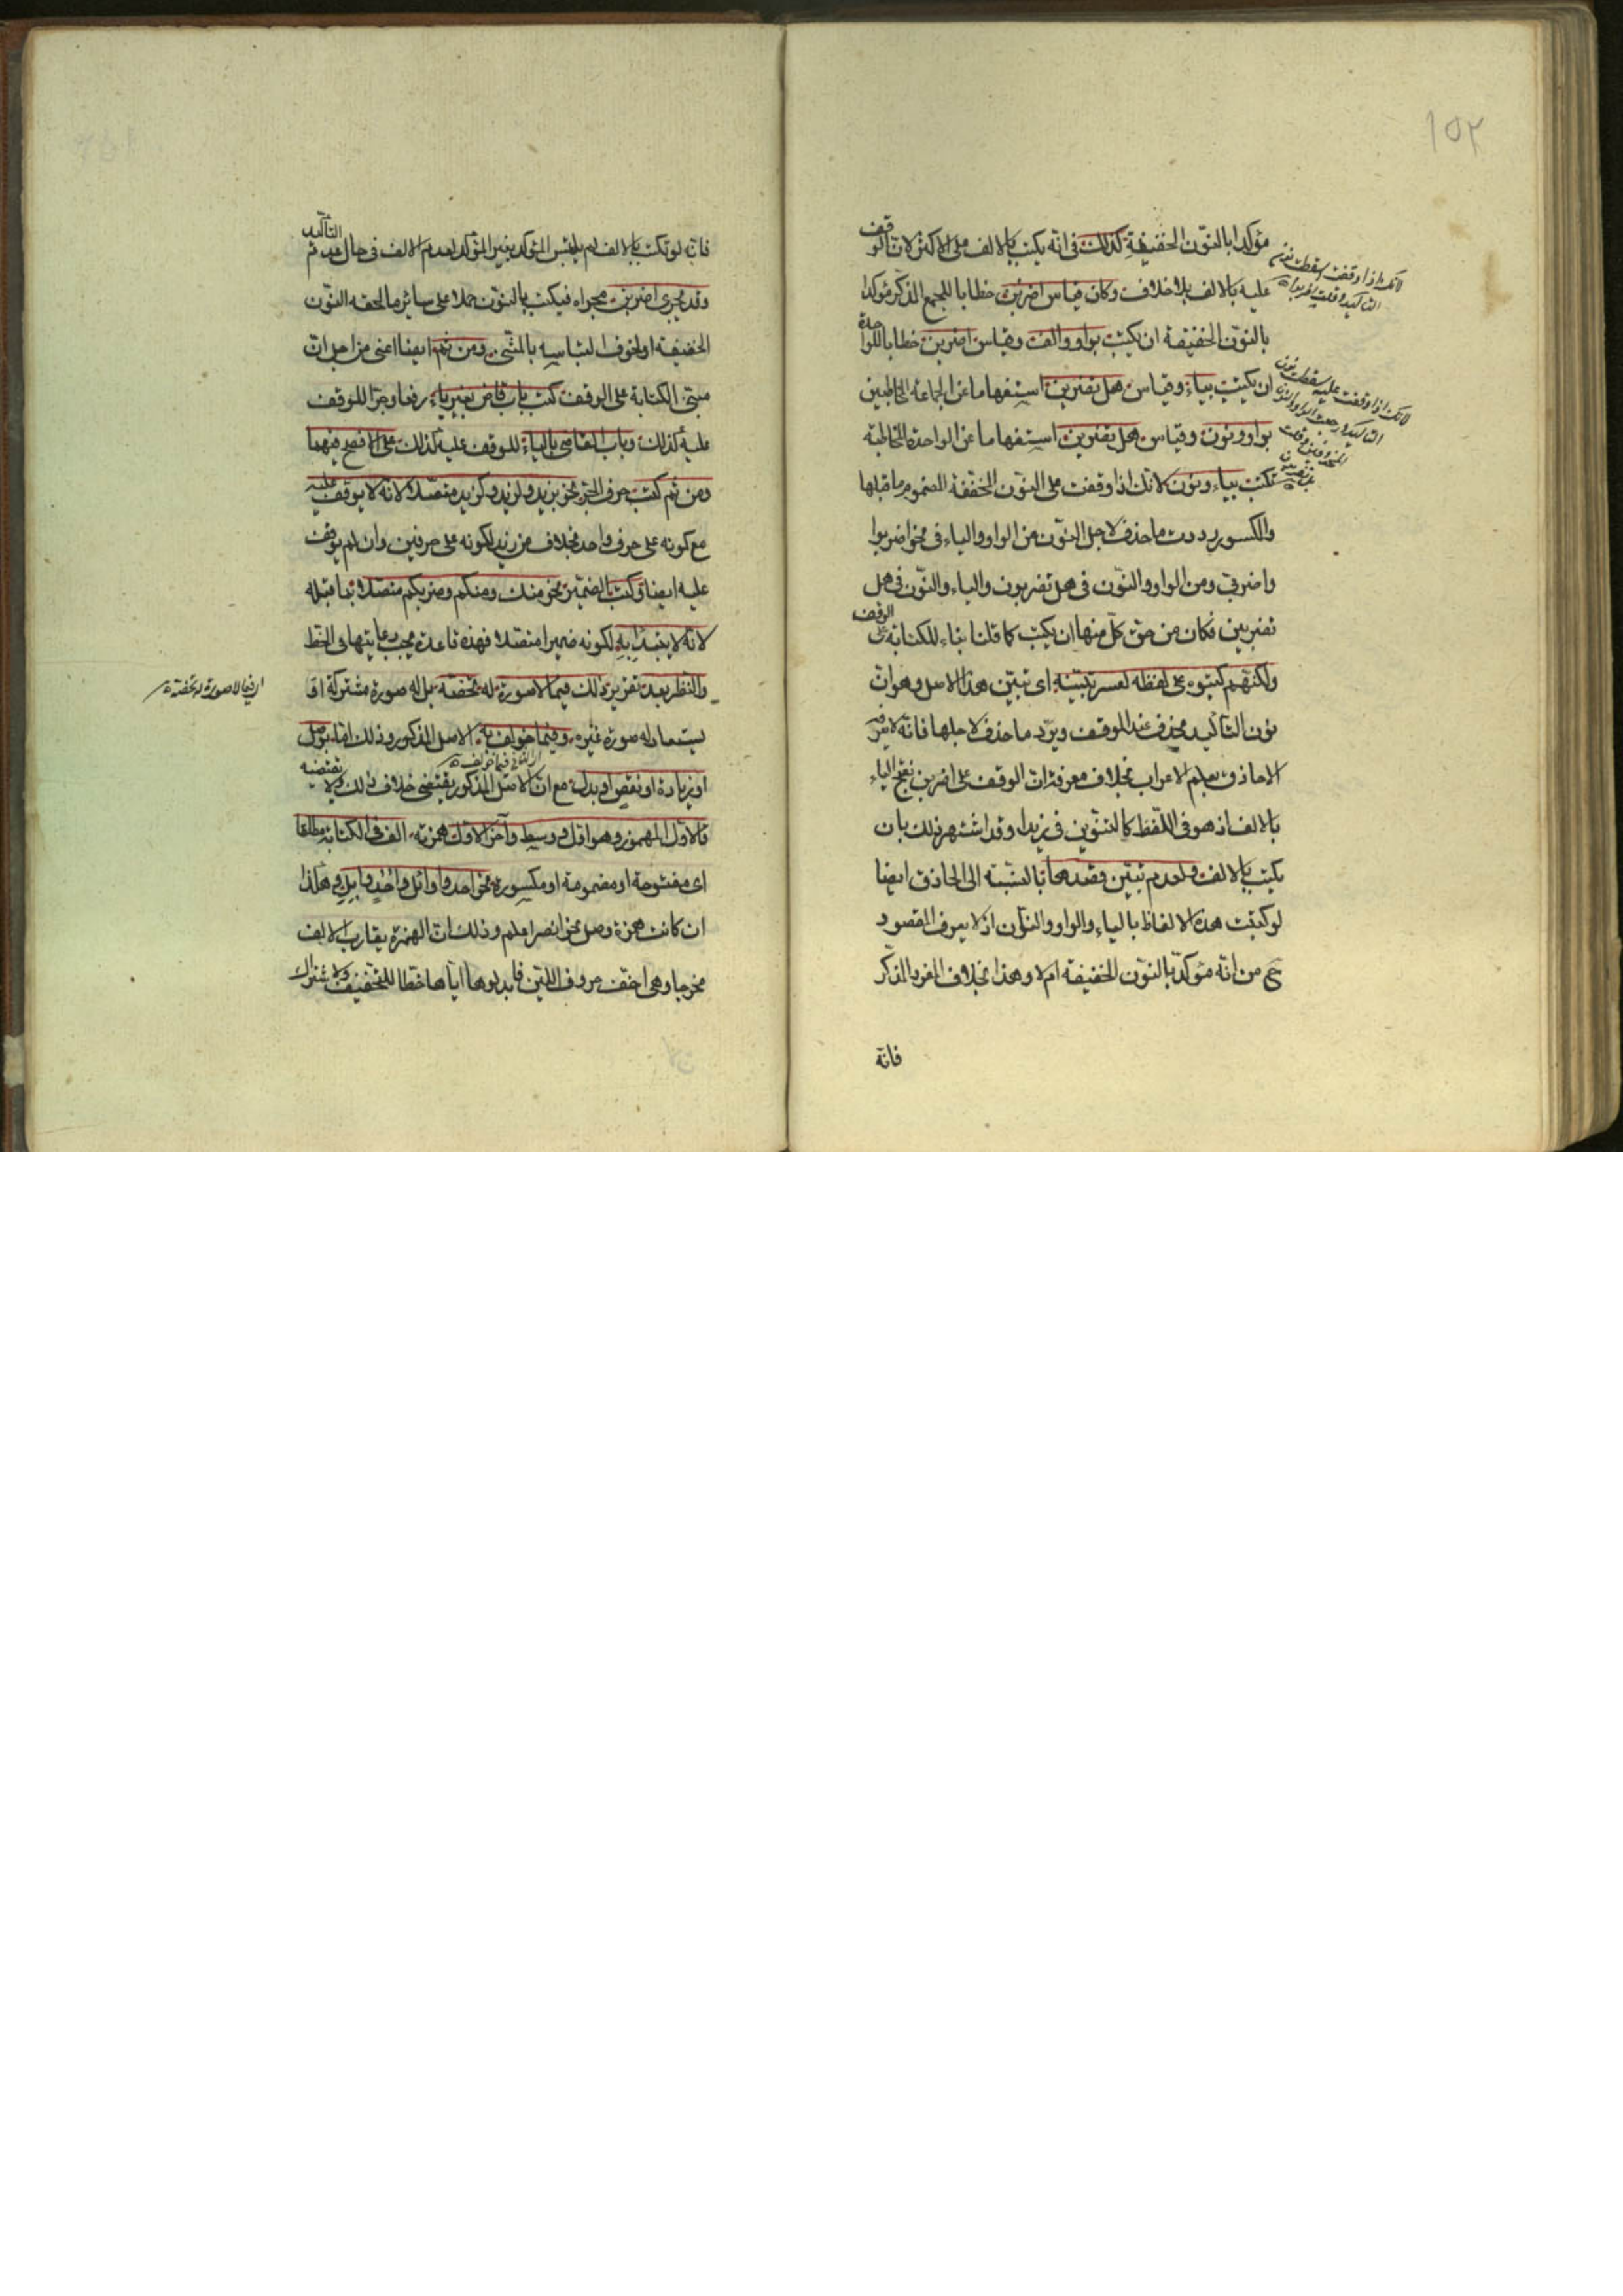 ١٥٢
مؤكدا بالنون الخفيفة كذلك في انه يكتب بالالف على الاكثر لان الوقف
عليه بالالف بلا خلاف وكان قياس اضربن خطابا للجمع المذكر مؤكدا
بالنون الخفيفة ان يكتب بواو والف وقياس اضربن خطابا للواحدة
ان يكتب بياء وقياس هل تضربن استفهاما عن الجماعة المخاطبين
بواو ونون وقياس هل تضربن استفهاما عن الواحدة المخاطبة
تكتب بياء ونون لانك اذا وقفت على النون المخففة المضموم ما قبلها
والمكسور رددت ما حذف لاجل النون من الواو والياء في نحو اضربوا
واضربي ومن الواو والنون في هل تضربون والياء والنون في هل
تضربين فكان من حق كل منها ان يكتب كما قلنا بناء للكتابة على الوقف
ولكنهم كتبوه على لفظه لعسر تبينه اى تبين هذا الاصل وهو ان
نون التاكيد يحذف عند الوقف ويرد ما حذف لاجلها فانه لا يعرفه
الا حاذق بعلم الاعراب بخلاف معرفة ان الوقف على اضربن بفتح الباء
بالالف اذ هو في اللفظ كالتنوين في زيدا وقد اشتهر ذلك بان
يكتب بالالف ولعدم تبين قصدها بالنسبة الى الحاذق ايضا
لو كتبت هذه الالفاظ بالياء والواو والنون اذ لا يعرف المقصود
ح من انه مؤكد بالنون الخفيفة ام لا وهذا بخلاف المفرد المذكر
فانه
لانك اذا وقفت اسقطت نون
التاكيد وقلت اضربوا
لانك اذا وقفت عليه سقطت نون
التاكيد ورجعت الواو والنون
فانه لو تكتب بالالف لم يلتبس المؤكد بغير المؤكد لعدم الالف في حال عدم التاكيد ثم
وقد يجرى اضربن مجراه فيكتب بالنون حملا على سائر ما لحقه النون
الخفيفة او لخوف التباسه بالمثنى ومن ثم ايضا اعنى من اجل ان
مبنى الكتابة على الوقف كتب باب قاض بغير ياء رفعا وجرا للوقف
عليه كذلك وباب القاضى بالياء للوقف عليه كذلك على الافصح فيهما
ومن ثم كتب حرف الجر نحو بزيد ولزيد وكزيد متصلا لانه لا يوقف عليه
مع كونه على حرف واحد بخلاف من زيد لكونه على حرفين وان لم يوقف
عليه ايضا وكتب الضمير نحو منك ومنكم وضربكم متصلا بما قبله
لانه لا يبتدأ به لكونه ضميرا متصلا فهذه قاعدة يجب رعايتها في الخط
والنظر بعد تقرير ذلك فيما لا صورة له تخصه بل له صورة مشتركة او
يستعار له صورة غيره وفيما خولف به الاصل المذكور وذلك اما بوصل
او زيادة او نقص او بدل مع ان الاصل المذكور يقتضى خلاف ذلك ولا يقتضيه
فالاول المهموز وهو اول ووسط وآخر الاول همزته الف في الكتابة مطلقا
اى مفتوحة او مضمومة او مكسورة نحو احد واوائل واحد وابل وهكذا
ان كانت همزة وصل نحو انصر اعلم وذلك ان الهمزة يقارب الالف
مخرجا وهى اخف حروف اللين فابدلوها اياها خطا للتخفيف ولاشتراك
اى فيما لا صورة له تخصه